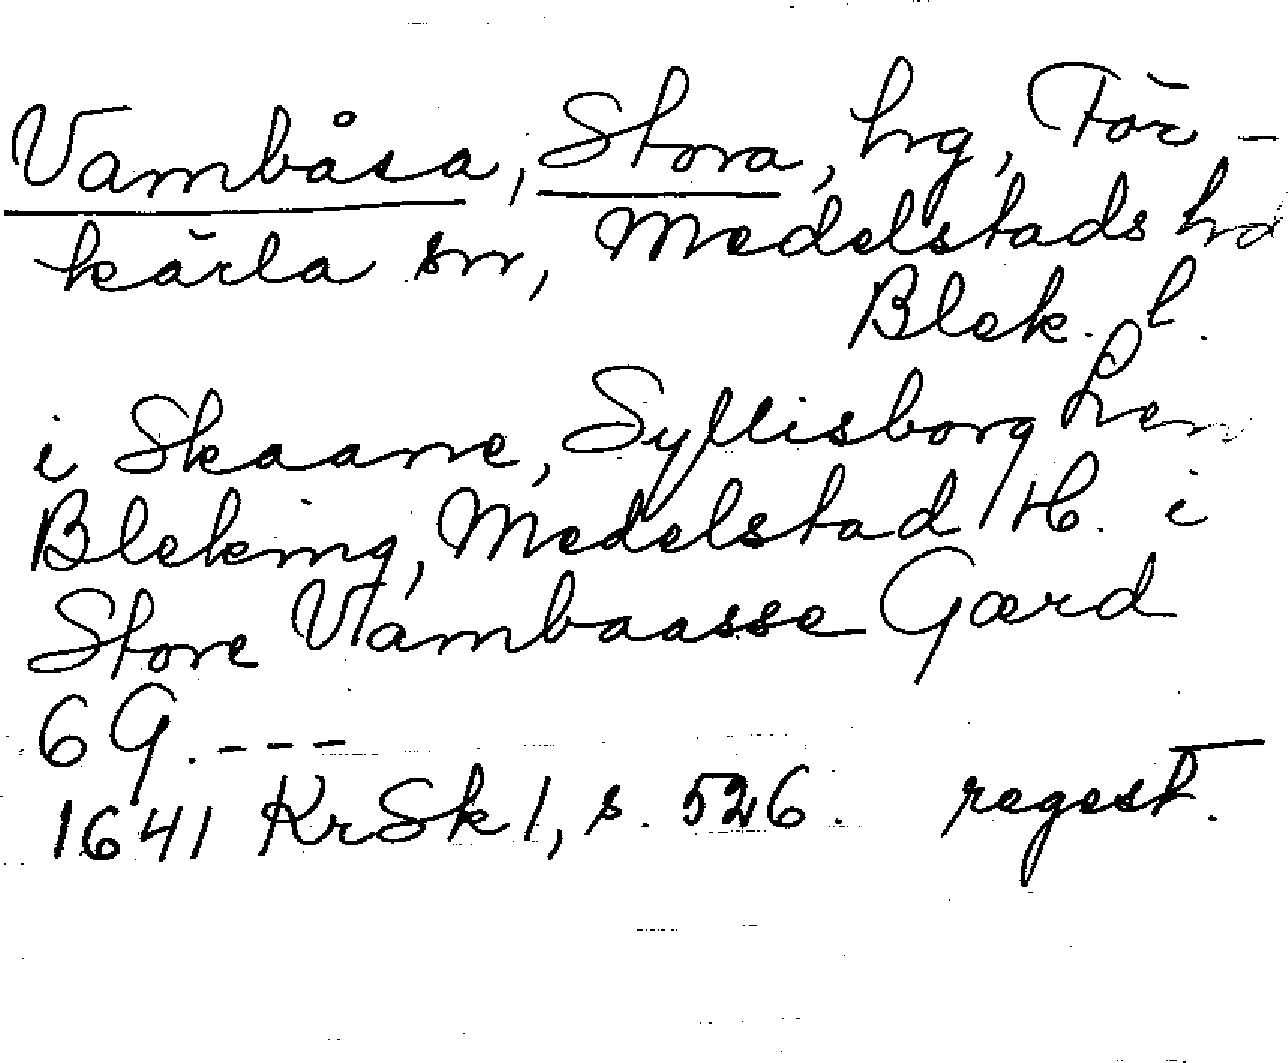 Vambåsa, Stora, hrg, För-
kärla sn, Medelstads hd
Blek. l.
i Skaane, Syllisborg Len
Bleking, Medelstad H. i
Store Vambaasse Gaard
6 G. ---
1641 KrSk 1, s. 526. regest.